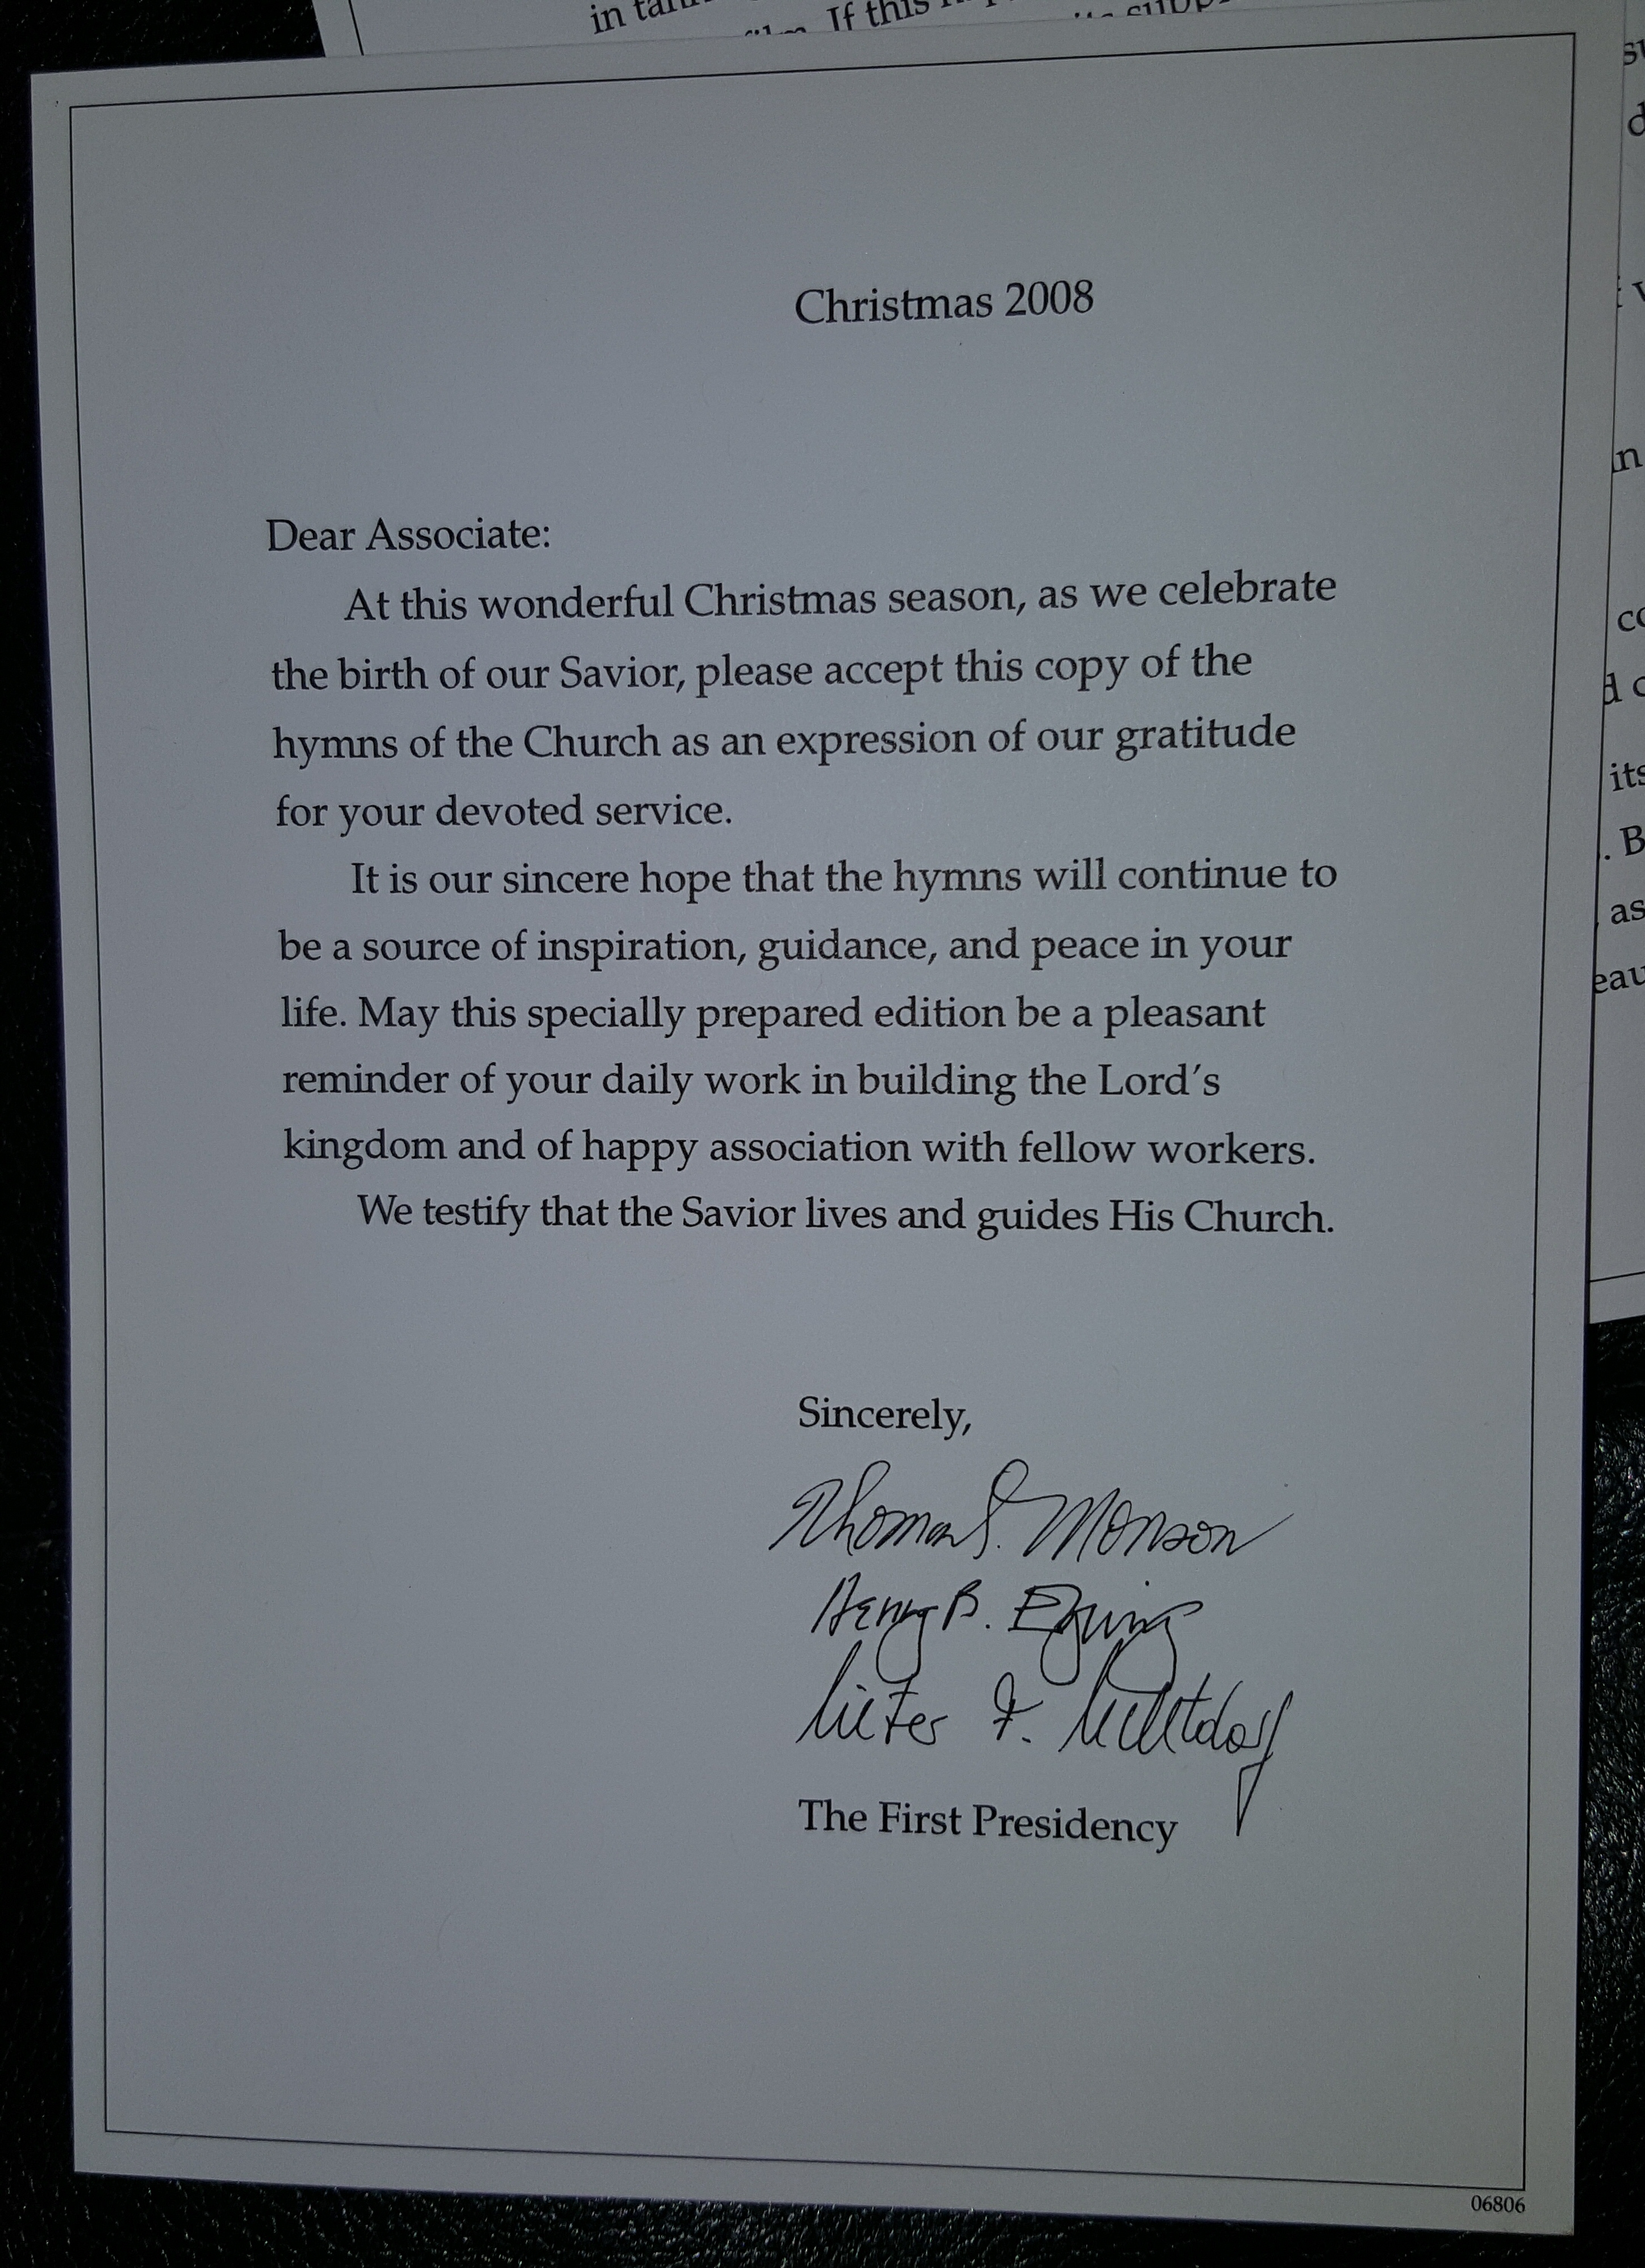 in
If this
Christmas 2008
Dear Associate:
At this wonderful Christmas season, as we celebrate
the birth of our Savior, please accept this copy of the
hymns of the Church as an expression of our gratitude
for your devoted service.
It is our sincere hope that the hymns will continue to
be a source of inspiration, guidance, and peace in your
life. May this specially prepared edition be a pleasant
reminder of your daily work in building the Lord's
kingdom and of happy association with fellow workers.
We testify that the Savior lives and guides His Church.
Sincerely,
Thomas S. Monson
Henry B. Eyring
Dieter F. Uchtdorf
The First Presidency
06806
its
. B
as